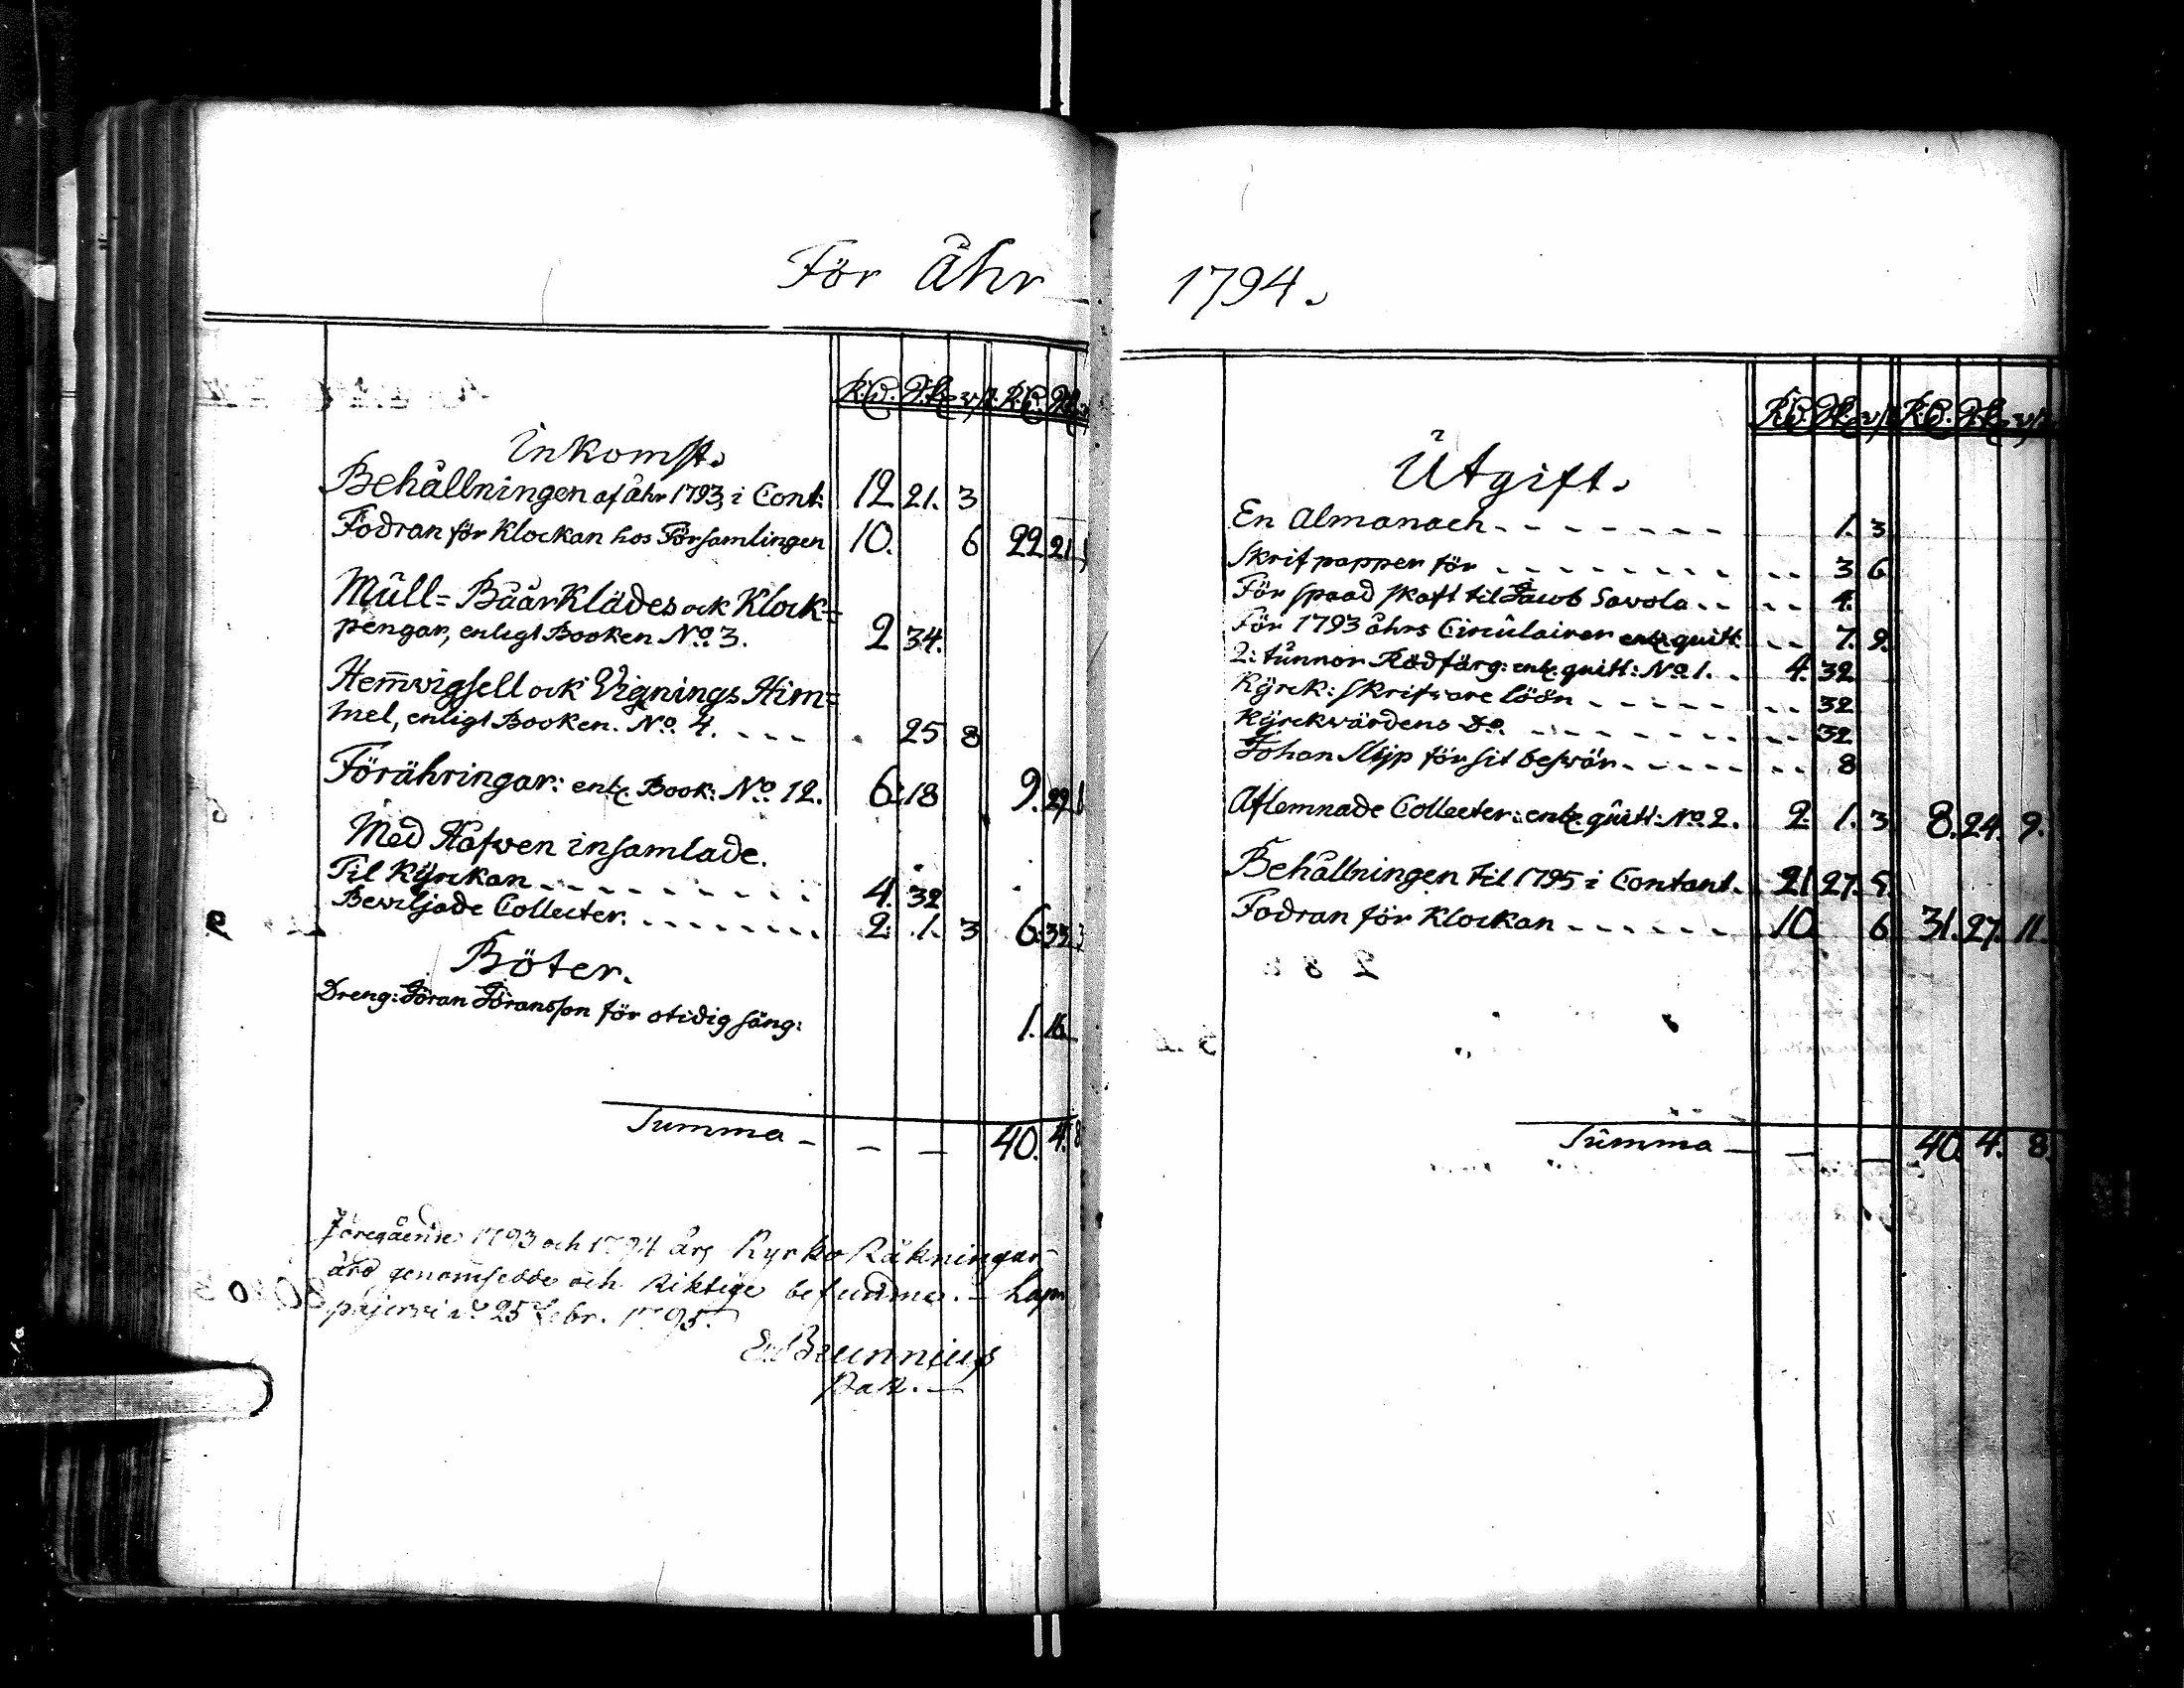 För Åhr
R:D. sk. r/s. R:D. sk.
Inkomst.
Behållningen af åhr 1793, i Cont: 12 21. 3
Fodran för Klockan hos Församlingen 10. 6 22 21
Mull= Båårklädes ock Klock=
pengar, enligt Booken No. 3. 2 34.
Hemvigsell ock Vignings Him=
mel, enligt Booken. No. 4. - - - 25 8
Förähringar: enl. Book: No. 12. 6: 18 9. 29
Med Hafwen insamlade.
Til Kyrckan - - - - - - - - 4. 32
Beviljade Collecter. - - - - - - - 2. 1. 3 6. 33. 3
Böter.
Dreng: Jöran Jöransson för otidig säng: 1. 16
Summa - - - 40. 4. 8
Föregående 1793 och 1794 års Kyrko Räkningar
äro genomsedde och riktige befundna. - Lap
pajervi d. 25 Febr. 1795.
Brunnius
Past. -
1794.
R:D. sk. r/s. R:D. sk. r/s.
Utgift.
En Almanach - - - - - - - 1. 3
Skrifpapper för - - - - - - - - 3 6
För spaad skaft til Jacob Savola - - - - 4.
För 1793 åhrs Circulairer enl. quitt: - - 7. 9.
2: tunnor Rödfärg: enl. quitt: No. 1. - 4. 32
Kyrck: skrifvare löön - - - - - - - 32
Kyrckvärdens Do. - - - - - - - - - 32
Johan Slip för sit beswär - - - - - - - 8
Aflemnade Collecter: enl. quitt: No. 2. 2. 1. 3 8. 24. 9.
Behållningen til 1795 i Contant. 21 27. 5.
Fodran för Klockan - - - - - - 10 6 31. 27. 11.
Summa - - - 40. 4. 8.